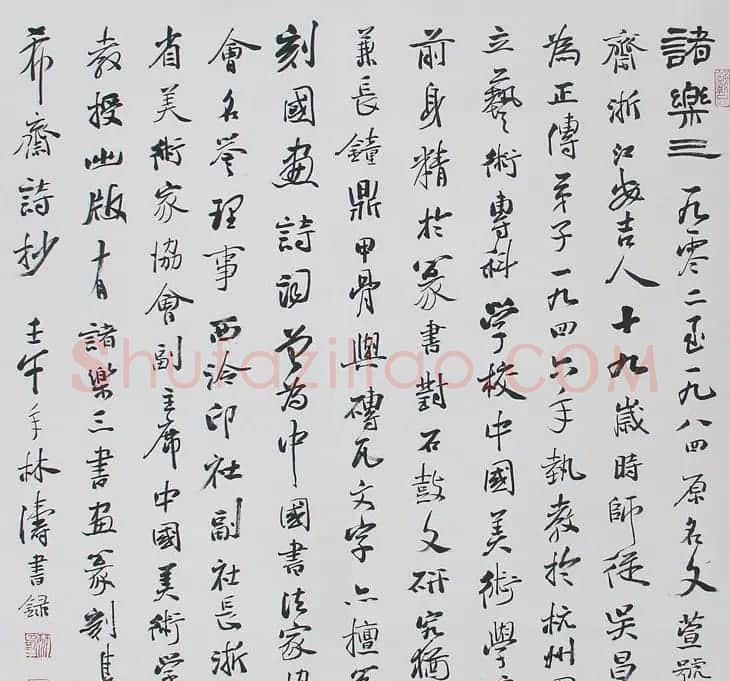 諸樂三 一九零二至一九八四 原名文萱號
齋浙江安吉人十九歲時師從吳昌
為正傳弟子一九四六年執教於杭州國
立藝術專科学校中國美術學
前身精於篆書對石鼓文研究猶
兼長鐘鼎甲骨與磚瓦文字亦擅篆
刻國画詩詞曾為中國書法家協
會名誉理事西泠印社副社長浙
省美術家協會副主席中國美術学
教授出版有諸樂三書画篆刻集
希齋詩抄 壬午年林濤書録
Shufaziliao.COM